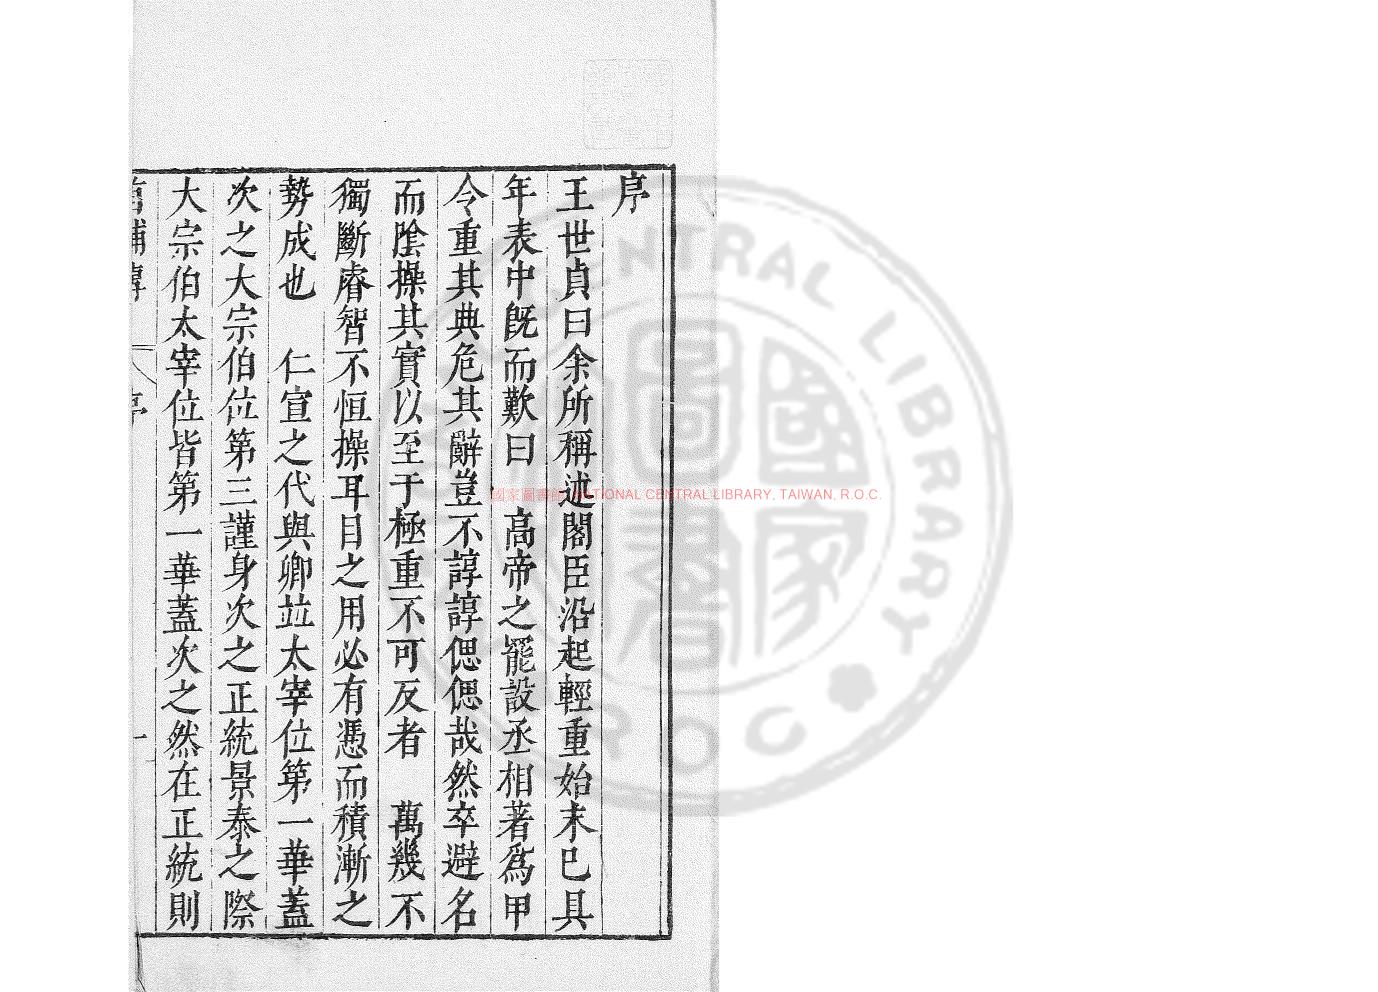 序
王世貞曰余所稱述閣臣沿起輕重始末已具
年表中旣而歎曰　高帝之罷設丞相著爲甲
令重其典危其辭豈不諄諄偲偲哉然卒避名
而陰操其實以至于極重不可反者　萬幾不
獨斷睿智不恒操耳目之用必有憑而積漸之
勢成也　仁宣之代與卿並太宰位第一華蓋
次之大宗伯位第三謹身次之正統景泰之際
大宗伯太宰位皆第一華蓋次之然在正統則
序 一
國家圖書館 NATIONAL CENTRAL LIBRARY, TAIWAN, R.O.C.
CENTRAL LIBRARY
R O C
國家圖書